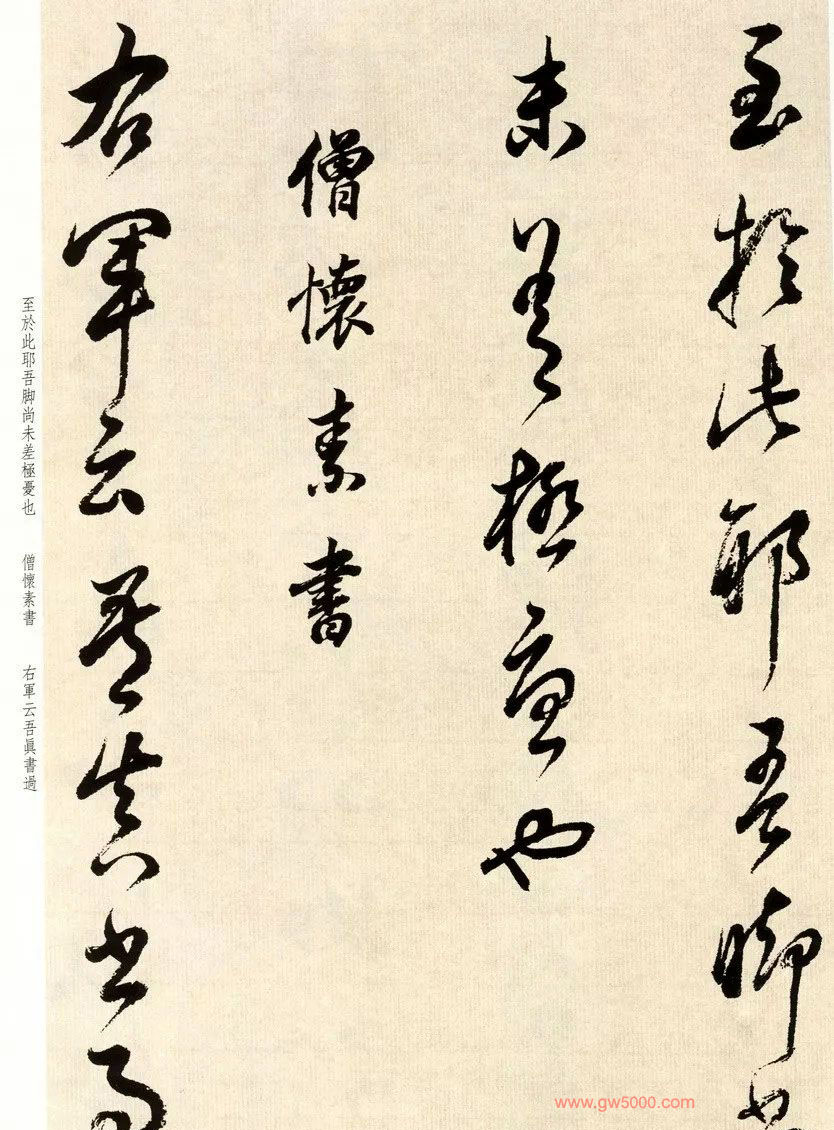 至於此耶吾脚尚
未差極憂也
僧懷素書
右軍云吾真書過
至於此耶吾脚尚未差極憂也　僧懷素書　右軍云吾眞書過
www.gw5000.com